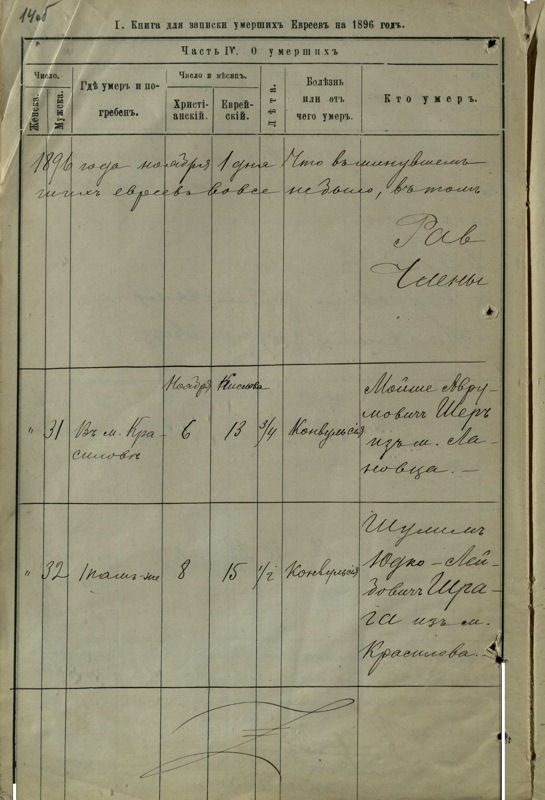 14об
I. Книга для записки умершихъ Евреевъ на 1896 годъ.
Часть IV. О умершихъ
Число.
Женска.
Мужска.
Гдѣ умеръ и по-
гребенъ.
Число и мѣсяцъ.
Христі-
анскій.
Еврей-
скій.
Лѣта.
Болѣзнь
или отъ
чего умеръ.
Кто умеръ.
1896 года ноября 1 дня Что въ минувшемъ
евреевъ вовсе не было, въ томъ
Рав
Члены
Ноября Кислева
" 31 Въ м. Кра-
силовѣ
6 13 3/4 Конвульсія
Мойше Авру-
мовичъ Шеръ
изъ м. Ла-
новца. —
" 32 тамъ-же 8 15 1/2 Конвульсія
Шулимъ
Юдко-Лей-
бовичъ Шра-
га изъ м.
Красилова. —